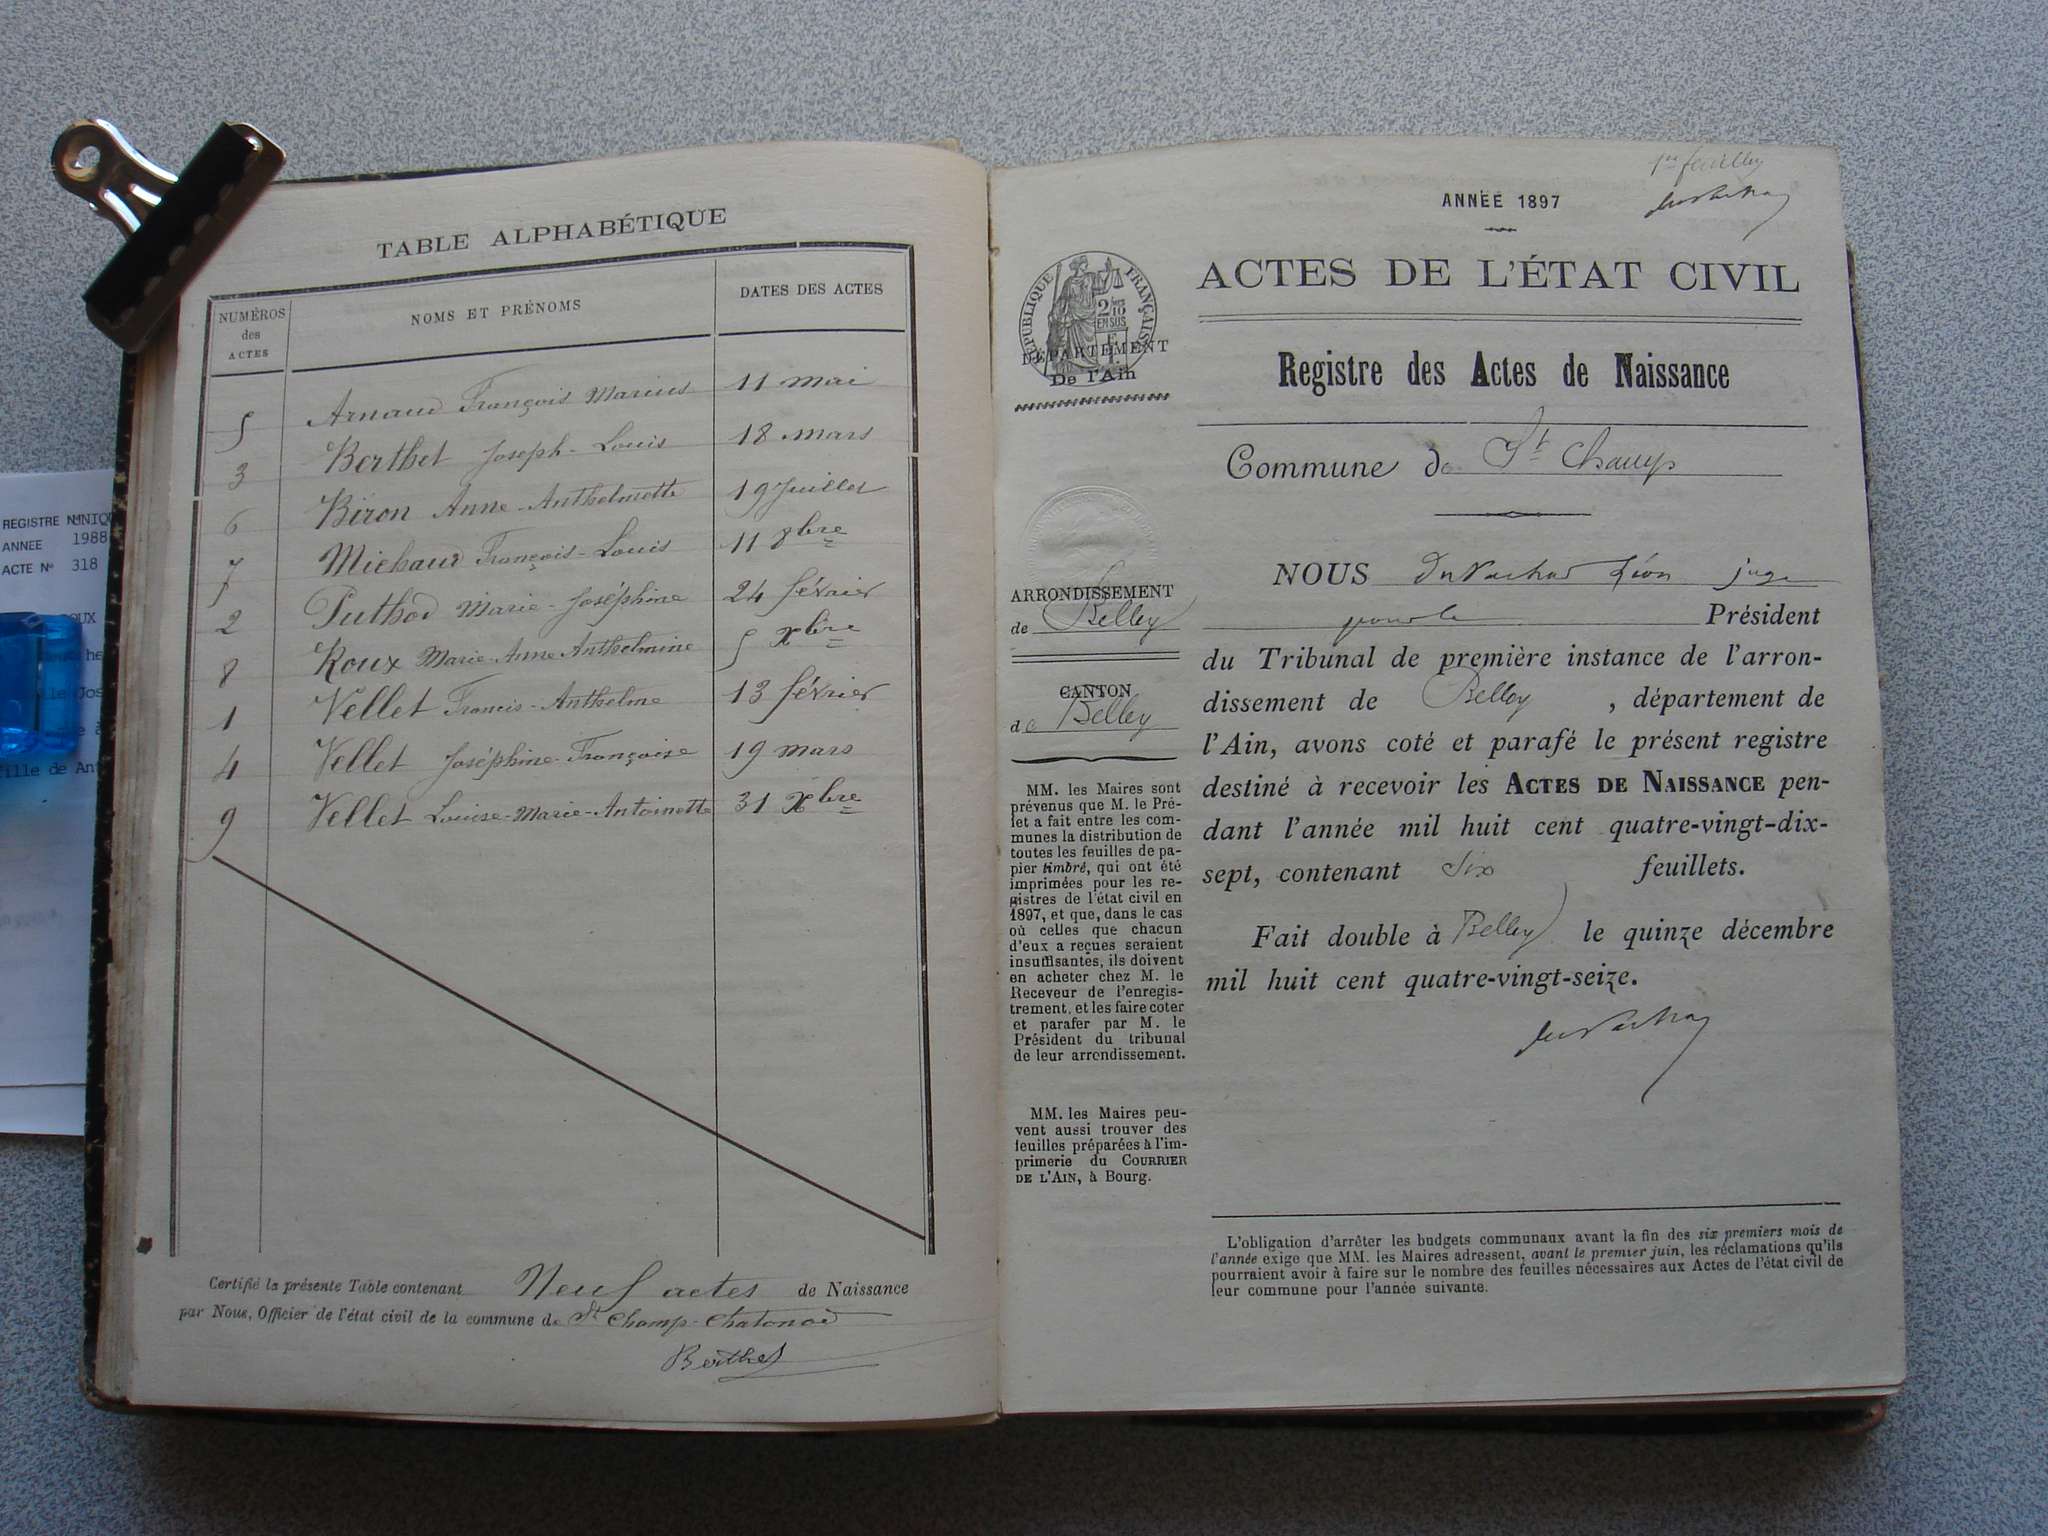 TABLE ALPHABÉTIQUE
NUMÉROS des ACTES
NOMS ET PRÉNOMS
DATES DES ACTES
5 Arnaud François Marius 11 mai
3 Berthet Joseph-Louis 18 mars
6 Biron Anne-Anthelmette 19 Juillet
7 Michaud François-Louis 11 8bre
2 Puthod Marie-Joséphine 24 février
8 Roux Marie-Anne Anthelmine 5 Xbre
1 Vellet Francis-Anthelme 13 février
4 Vellet Joséphine-Françoise 19 mars
9 Vellet Louise-Marie-Antoinette 31 Xbre
Certifié la présente Table contenant Neuf actes de Naissance
par Nous, Officier de l'état civil de la commune de St Champ-Chatonod
Berthet
REGISTRE
ANNEE 1988
ACTE N° 318
ille de Ant
ANNÉE 1897
ACTES DE L'ÉTAT CIVIL
RÉPUBLIQUE FRANÇAISE
2/10 EN SUS
DÉPARTEMENT
De l'Ain
Registre des Actes de Naissance
Commune de St Champ
ARRONDISSEMENT
de Belley
CANTON
de Belley
MM. les Maires sont
prévenus que M. le Pré-
fet a fait entre les com-
munes la distribution de
toutes les feuilles de pa-
pier timbré, qui ont été
imprimées pour les re-
gistres de l'état civil en
1897, et que, dans le cas
où celles que chacun
d'eux a reçues seraient
insuffisantes, ils doivent
en acheter chez M. le
Receveur de l'enregis-
trement, et les faire coter
et parafer par M. le
Président du tribunal
de leur arrondissement.
MM. les Maires peu-
vent aussi trouver des
feuilles préparées à l'im-
primerie du COURRIER
DE L'AIN, à Bourg.
NOUS Léon juge
pour le Président
du Tribunal de première instance de l'arron-
dissement de Belley, département de
l'Ain, avons coté et parafé le présent registre
destiné à recevoir les ACTES DE NAISSANCE pen-
dant l'année mil huit cent quatre-vingt-dix-
sept, contenant Six feuillets.
Fait double à Belley le quinze décembre
mil huit cent quatre-vingt-seize.
L'obligation d'arrêter les budgets communaux avant la fin des six premiers mois de
l'année exige que MM. les Maires adressent, avant le premier juin, les réclamations qu'ils
pourraient avoir à faire sur le nombre des feuilles nécessaires aux Actes de l'état civil de
leur commune pour l'année suivante.